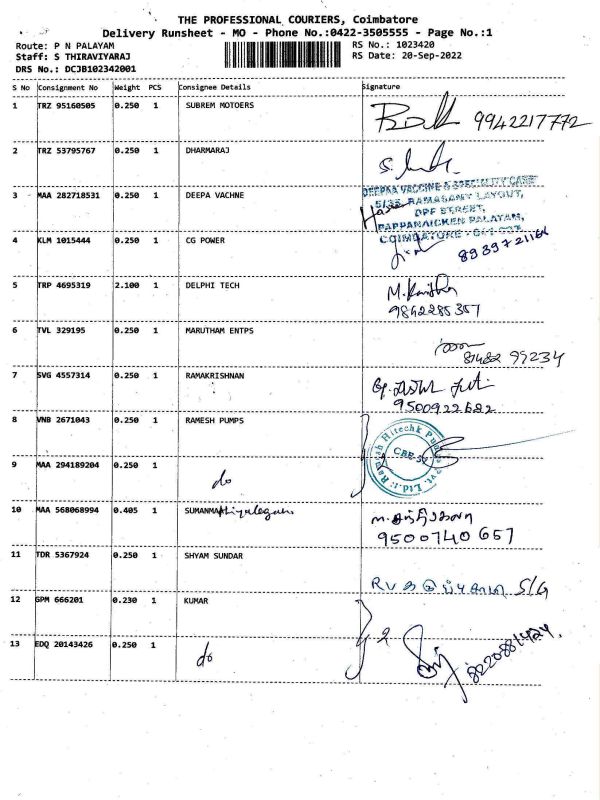 THE PROFESSIONAL COURIERS, Coimbatore
Delivery Runsheet - MO - Phone No.:0422-3505555 - Page No.:1
Route: P N PALAYAM RS No.: 1023420
Staff: S THIRAVIYARAJ RS Date: 20-Sep-2022
DRS No.: DCJB102342001
S No Consignment No Weight PCS Consignee Details Signature
1 TRZ 95160505 0.250 1 SUBREM MOTOERS 9942217772
2 TRZ 53795767 0.250 1 DHARMARAJ
3 MAA 282718531 0.250 1 DEEPA VACHNE
DEEPAA VACCINE & SPECIALITY CARE
RAMASAMY LAYOUT,
DPF STREET,
PAPPANAICKEN PALAYAM,
COIMBATORE - 641 037
4 KLM 1015444 0.250 1 CG POWER
5 TRP 4695319 2.100 1 DELPHI TECH
9842285357
6 TVL 329195 0.250 1 MARUTHAM ENTPS
81482 99234
7 SVG 4557314 0.250 1 RAMAKRISHNAN
9500922682
8 VNB 2671043 0.250 1 RAMESH PUMPS
9 MAA 294189204 0.250 1 do
10 MAA 568068994 0.405 1
9500740657
11 TDR 5367924 0.250 1 SHYAM SUNDAR
S/G
12 GPM 666201 0.230 1 KUMAR
2
13 EDQ 20143426 0.250 1 do
8220881424